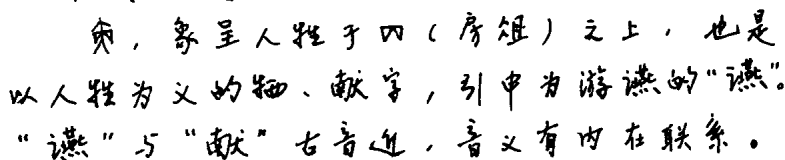 ，象呈人牲于冈（房俎）之上，也是
以人牲为义的牺、献字，引申为游讌的“讌”。
“讌”与“献”古音近，音义有内在联系。